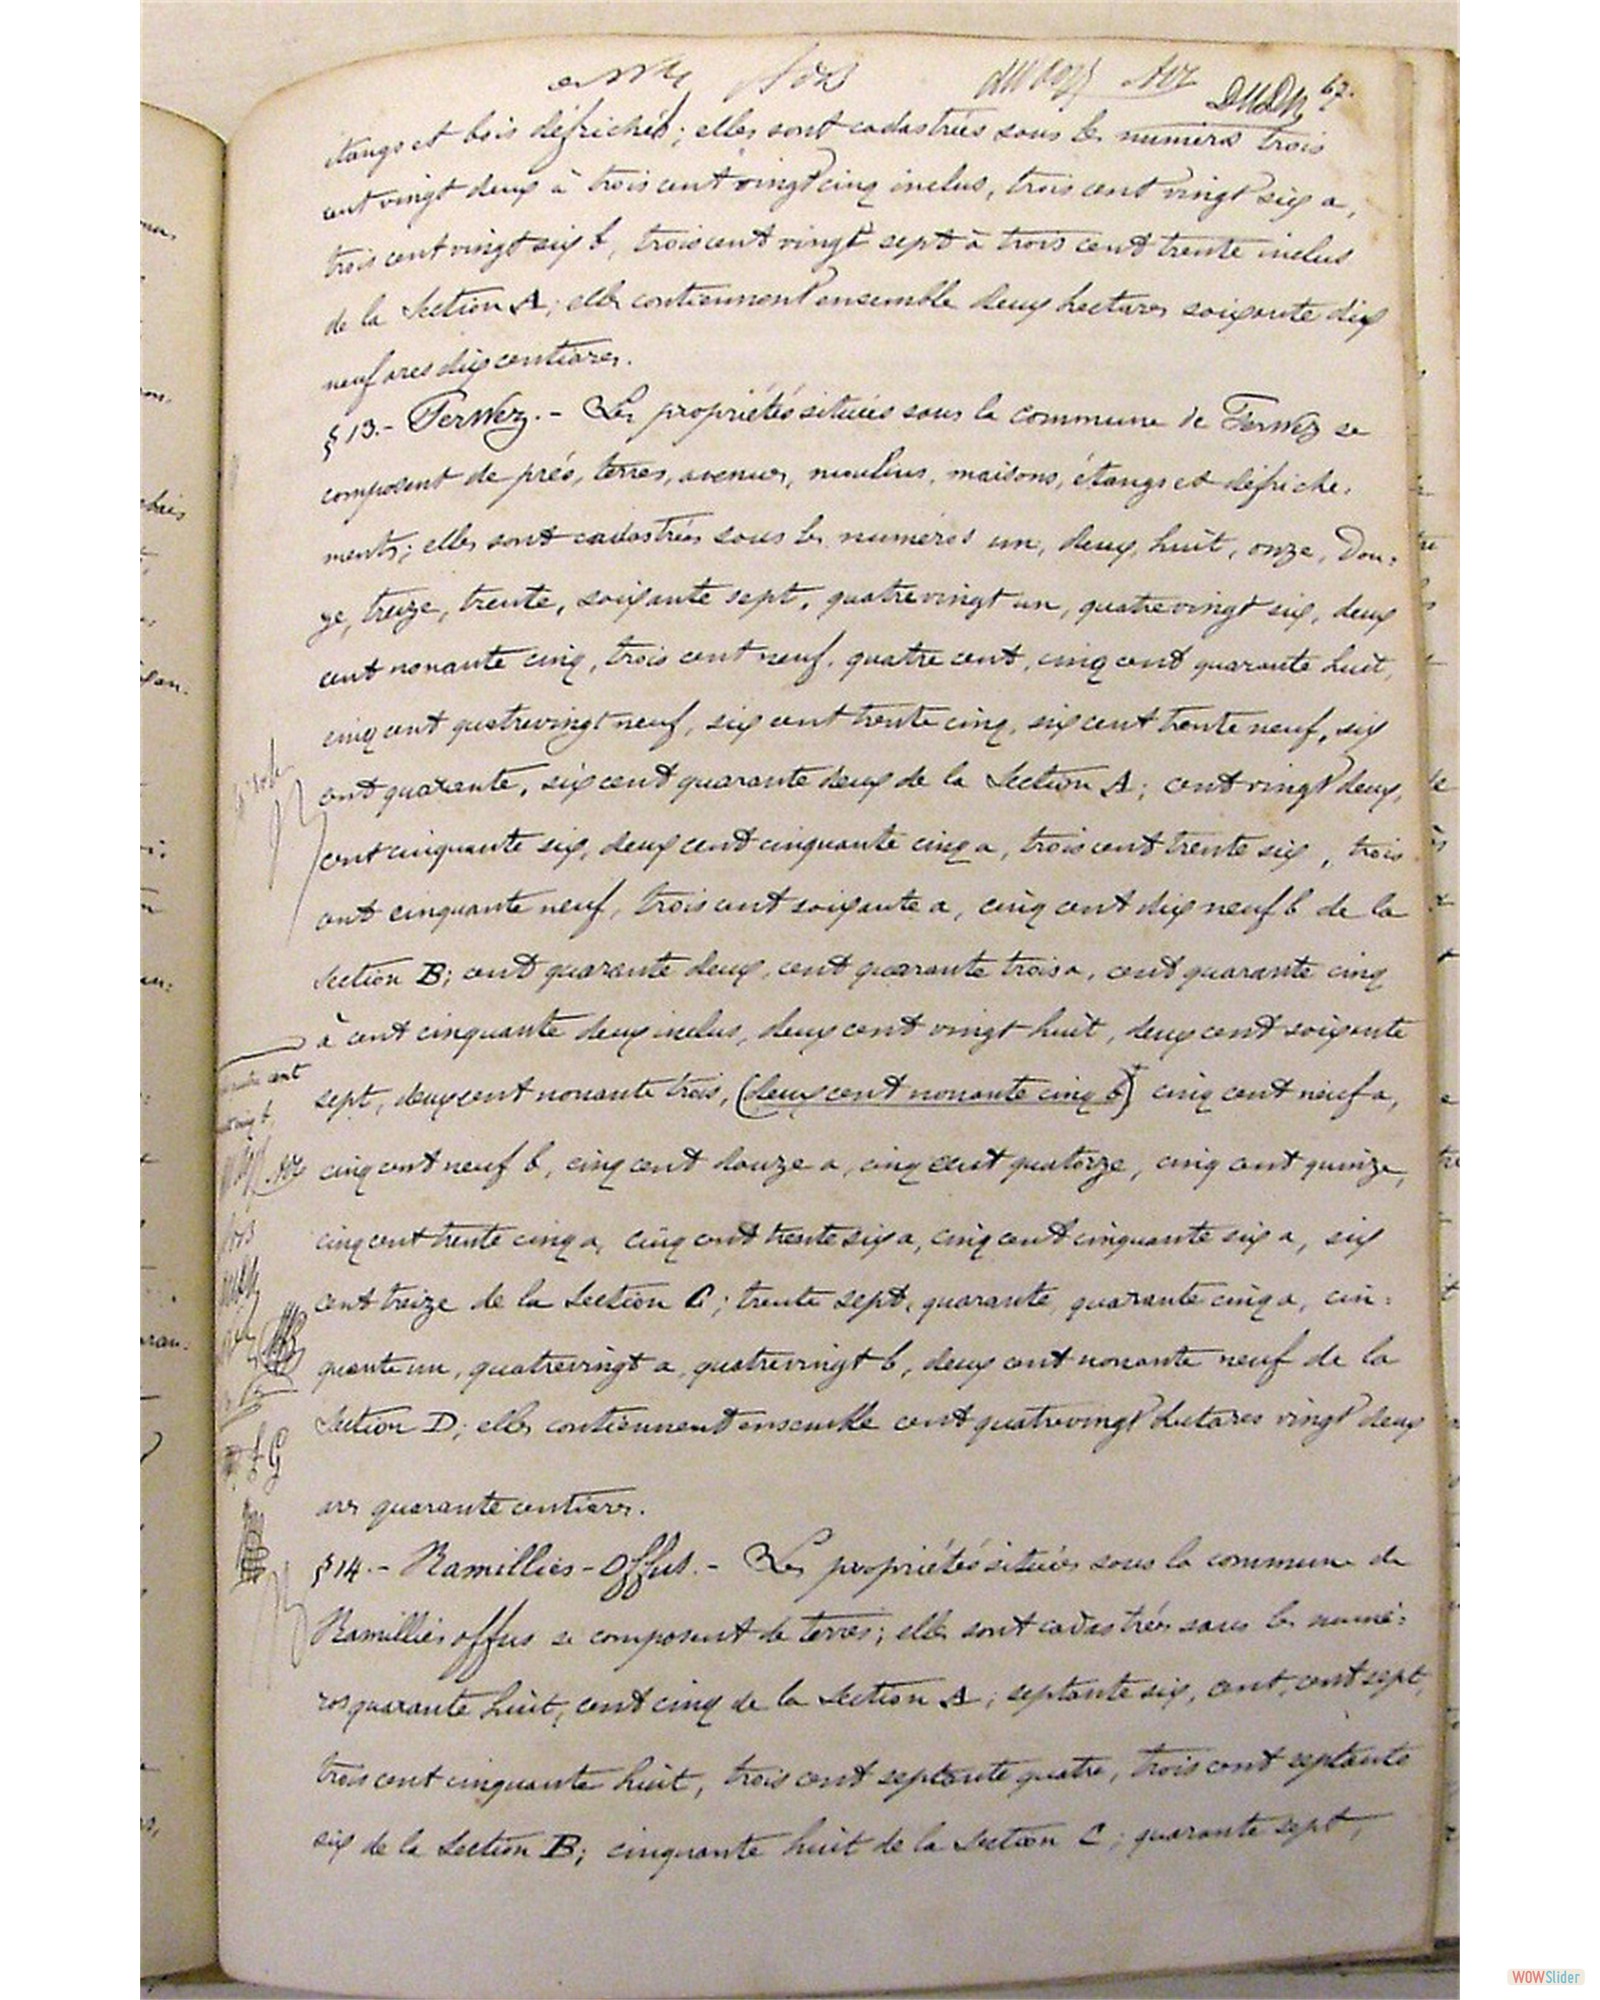 67.
étangs et bois défrichés; elles sont cadastrées sous les numéros trois
cent vingt deux à trois cent vingt cinq inclus, trois cent vingt six a,
trois cent vingt six b, trois cent vingt sept à trois cent trente inclus
de la Section A; elles contiennent ensemble deux hectares soixante dix
neuf ares dix centiares.
§ 13.- Perwez. - Les propriétés situées sous la commune de Perwez se
composent de prés, terres, avenues, moulins, maisons, étangs et défriche-
ments; elles sont cadastrées sous les numéros un, deux, huit, onze, dou-
ze, treize, trente, soixante sept, quatrevingt un, quatrevingt six, deux
cent nonante cinq, trois cent neuf, quatre cent, cinq cent quarante huit,
cinq cent quatrevingt neuf, six cent trente cinq, six cent trente neuf, six
cent quarante, six cent quarante deux de la Section A; cent vingt deux,
cent cinquante six, deux cent cinquante cinq a, trois cent trente six, trois
cent cinquante neuf, trois cent soixante a, cinq cent dix neuf b de la
Section B; cent quarante deux, cent quarante trois a, cent quarante cinq
à cent cinquante deux inclus, deux cent vingt huit, deux cent soixante
sept, deux cent nonante trois, (deux cent nonante cinq b) cinq cent neuf a,
cinq cent neuf b, cinq cent douze a, cinq cent quatorze, cinq cent quinze,
cinq cent trente cinq a, cinq cent trente six a, cinq cent cinquante six a, six
cent treize de la Section C; trente sept, quarante, quarante cinq a, cin-
quante un, quatrevingt a, quatrevingt b, deux cent nonante neuf de la
Section D; elles contiennent ensemble cent quatrevingt hectares vingt deux
ares quarante centiares.
§ 14.- Ramillies-Offus. - Les propriétés situées sous la commune de
Ramillies offus se composent de terres; elles sont cadastrées sous les numé-
ros quarante huit, cent cinq de la Section A; septante six, cent, cent sept,
trois cent cinquante huit, trois cent septante quatre, trois cent septante
six de la Section B; cinquante huit de la Section C; quarante sept,
WOWSlider